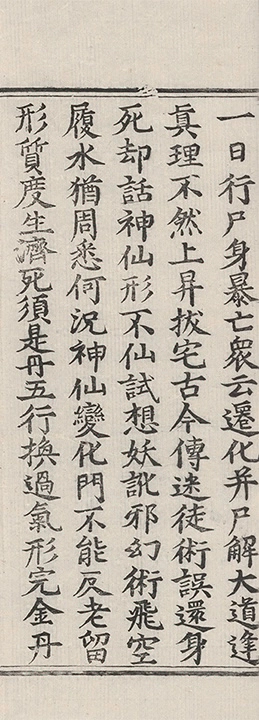 一日行尸身暴亡衆云遷化并尸解大道逢
眞理不然上昇拔宅古今傳迷徒術誤還身
死却話神仙形不仙試想妖訛邪幻術飛空
履水猶周悉何況神仙變化門不能反老留
形質度生濟死須是丹五行換過氣形完金丹